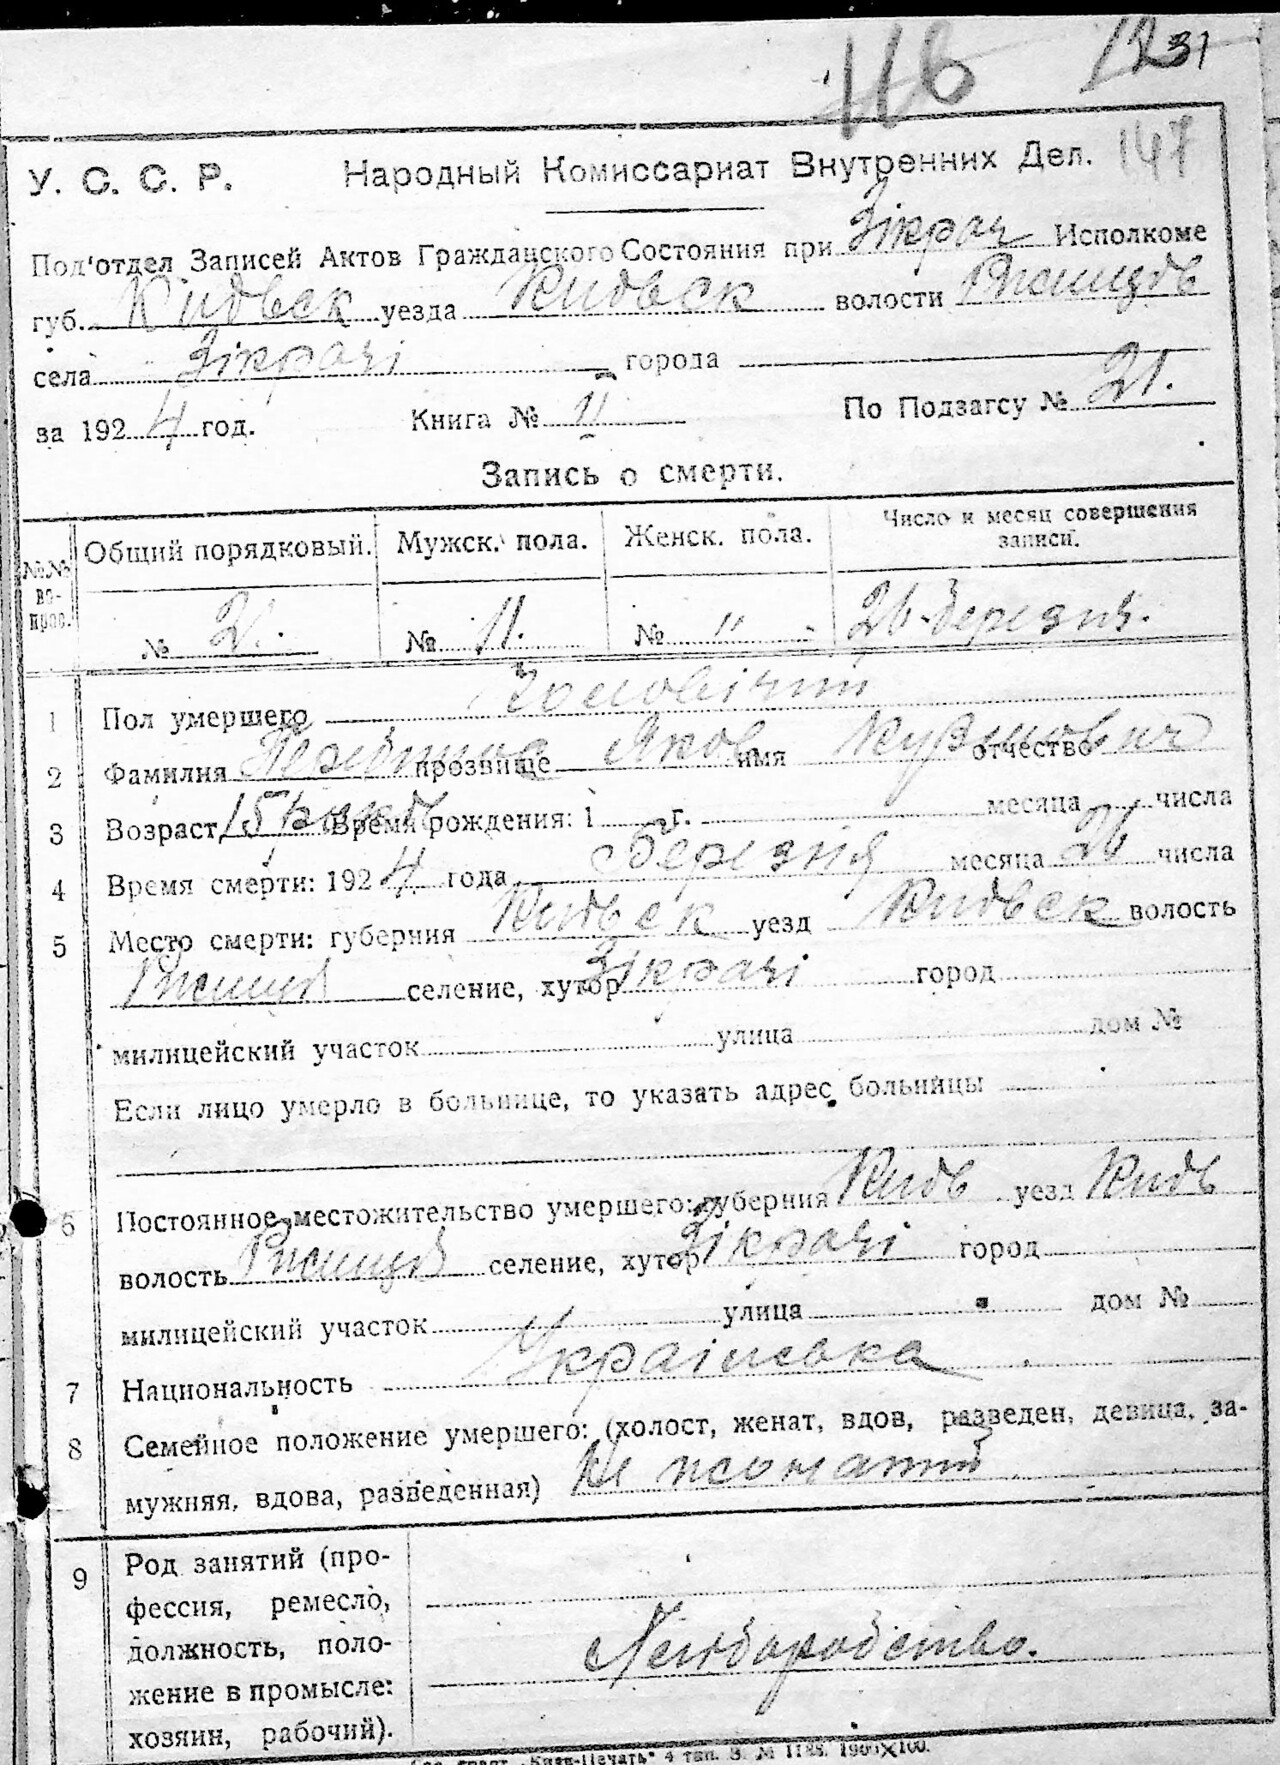 116 12 31
147
У. С. С. Р. Народный Комиссариат Внутренних Дел.
Под‘отдел Записей Актов Гражданского Состояния при Зікрач Исполкоме
губ. Київск уезда Київск волости Ржищів
села Зікрачі города
за 1924 год. Книга № 11 По Подзагсу № 21.
Запись о смерти.
№№ во-прос. Общий порядковый. Мужск. пола. Женск. пола. Число и месяц совершения
записи.
№ 21. № 11. № " 26 березня.
1 Пол умершего Чоловічий
2 Фамилия прозвище Яков имя отчество
3 Возраст 15 років Время рождения: 1 г. месяца числа
4 Время смерти: 1924 года Березня месяца 26 числа
5 Место смерти: губерния Київск уезд Київск волость
Ржищів селение, хутор Зікрачі город
милицейский участок улица дом №
Если лицо умерло в больнице, то указать адрес больницы
6 Постоянное местожительство умершего: губерния Київ уезд Київ
волость Ржищів селение, хутор Зікрачі город
милицейский участок улица дом №
7 Национальность Українська
8 Семейное положение умершего: (холост, женат, вдов, разведен, девица, за-
мужняя, вдова, разведенная) Не жонатий
9 Род занятий (про-
фессия, ремесло,
должность, поло-
жение в промысле:
хозяин, рабочий).
Хлiборобство.
„Киев-Печать“ 4 тип. З. № 1000×100.